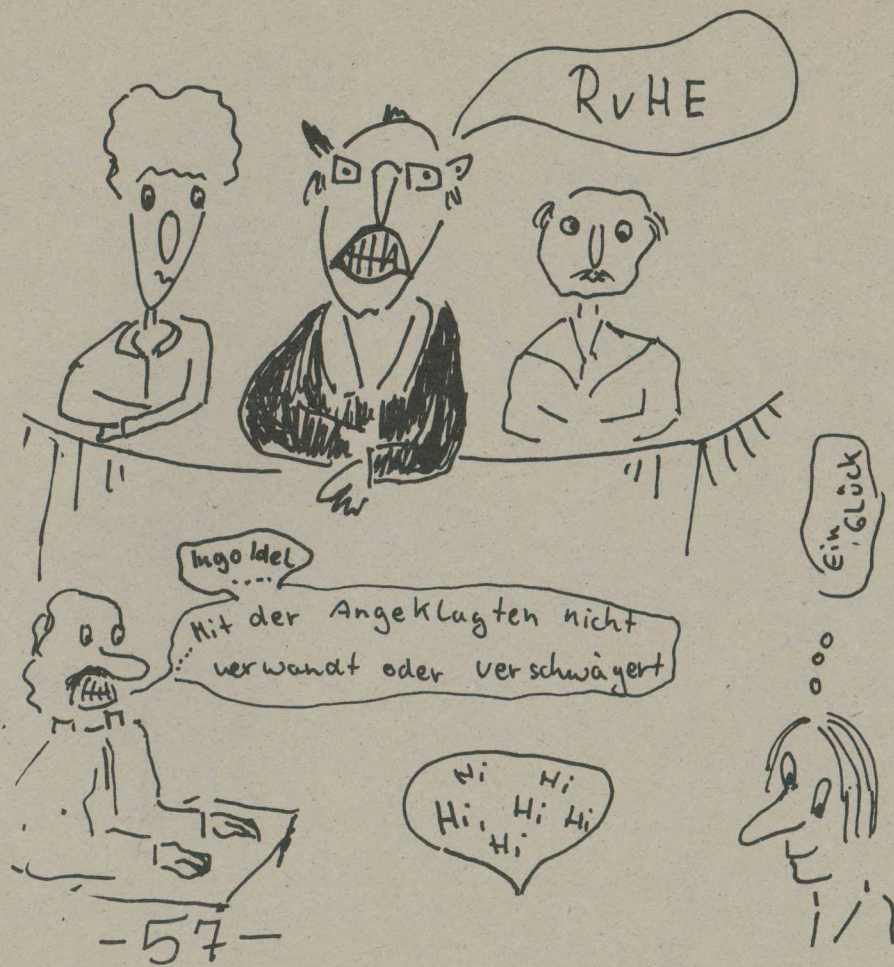 RUHE
Ein
Glück
Ingo Idel
.....
Mit der Angeklagten nicht
verwandt oder verschwägert
Hi Hi
Hi, Hi Hi
Hi
-57-